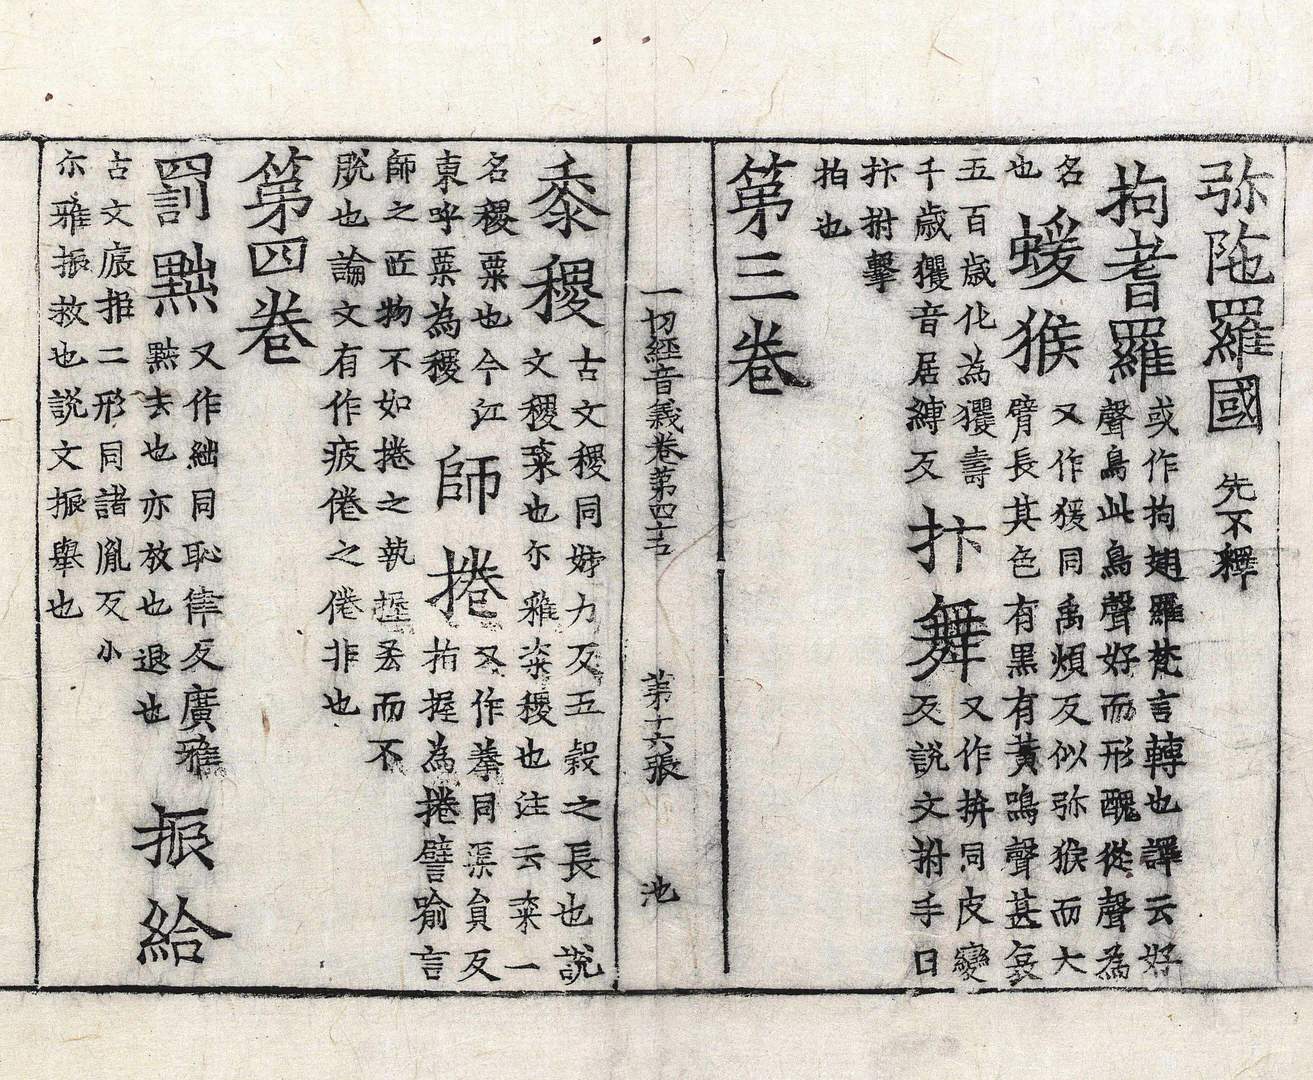 弥陁羅國 先不釋
拘耆羅 或作拘翅羅梵言轉也譯云好
聲鳥此鳥聲好而形醜從聲為
名
也 蝯猴 又作猨同禹煩反似弥猴而大
臂長其色有黒有黃鳴聲甚哀
五百歲化為玃壽
千歲玃音居縛反 抃舞 又作拚同皮變
反說文拊手曰
抃拊擊
拍也
第三卷
一切經音義卷第四十六 第十六張 池
黍稷 古文稷同姊力反五穀之長也說
文稷粢也尒雅粢稷也注云粢一
名稷粟也今江
東呼粟為稷 師捲 又作拳同渠負反
拈握為捲譬喻言
師之匠物不如捲之執握丟而不
脫也論文有作疲倦之倦非也
第四卷
罰黜 又作絀同恥律反廣雅
黜去也亦放也退也 振給
古文㡾拒二形同諸胤反小
尒雅振救也說文振舉也